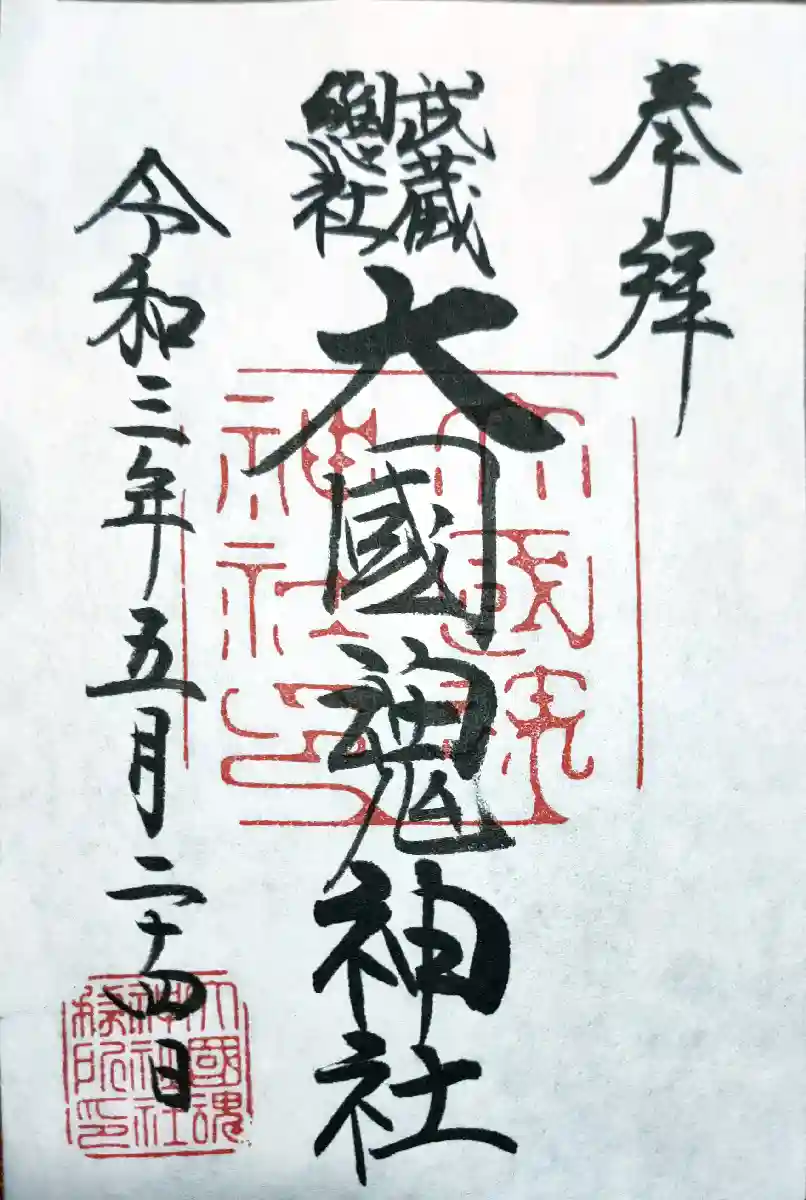 奉拝
武蔵
總社
大國魂神社
令和三年五月二十四日
大國魂
神社印
大國魂
神社
務所印